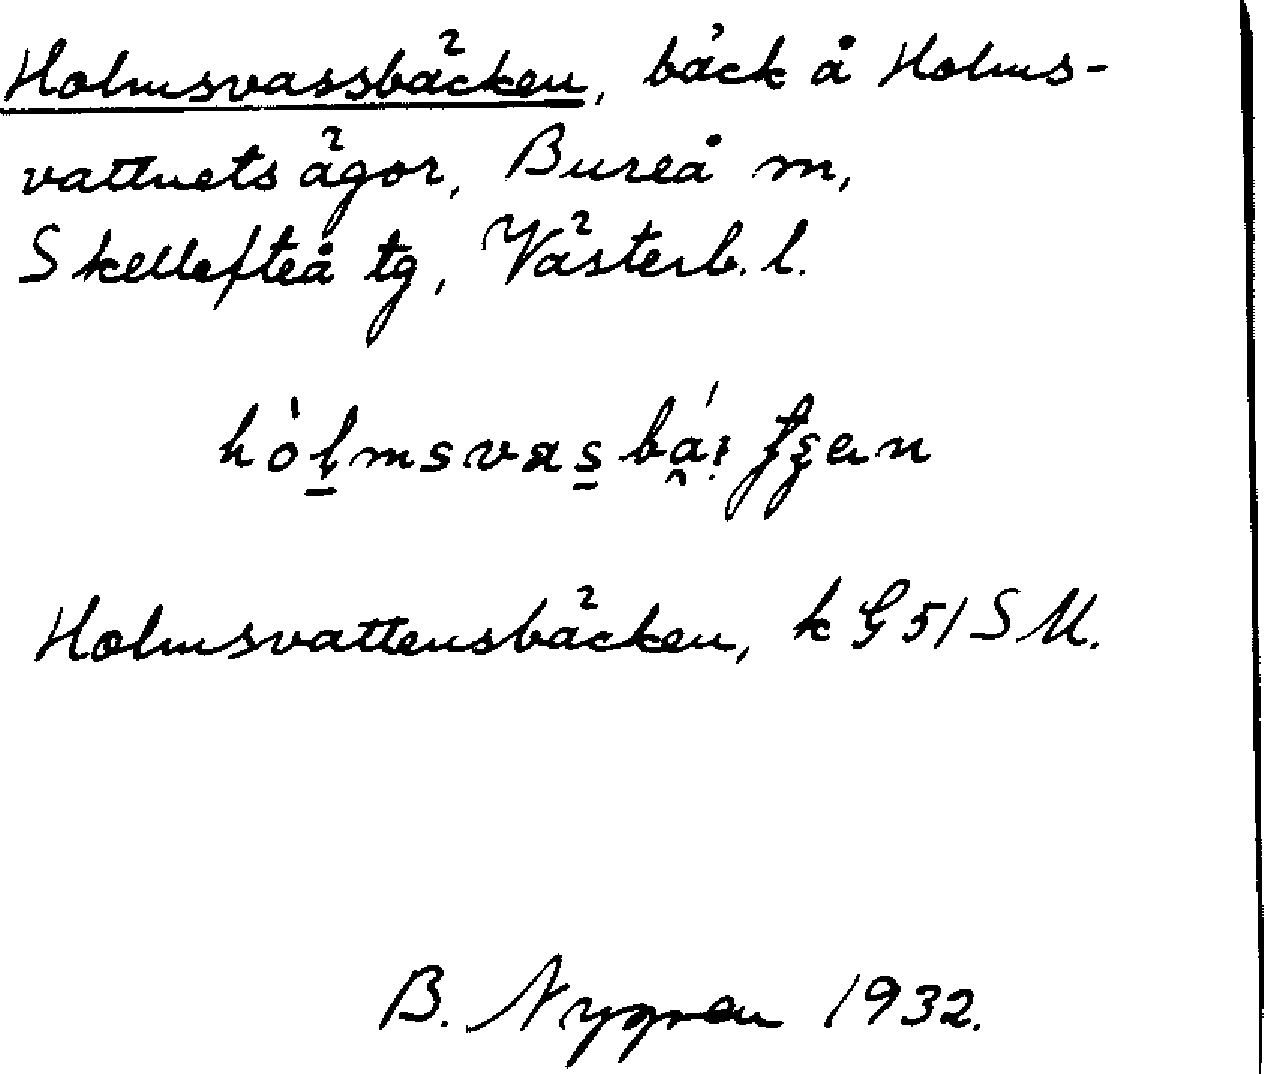 Holmsvassbäcken, bäck å Holms-
vattnets ägor, Bureå m,
Skellefteå tg, Västerb. l.
Holmsvattensbäcken, k G 51 S M.
B. Nygren 1932.